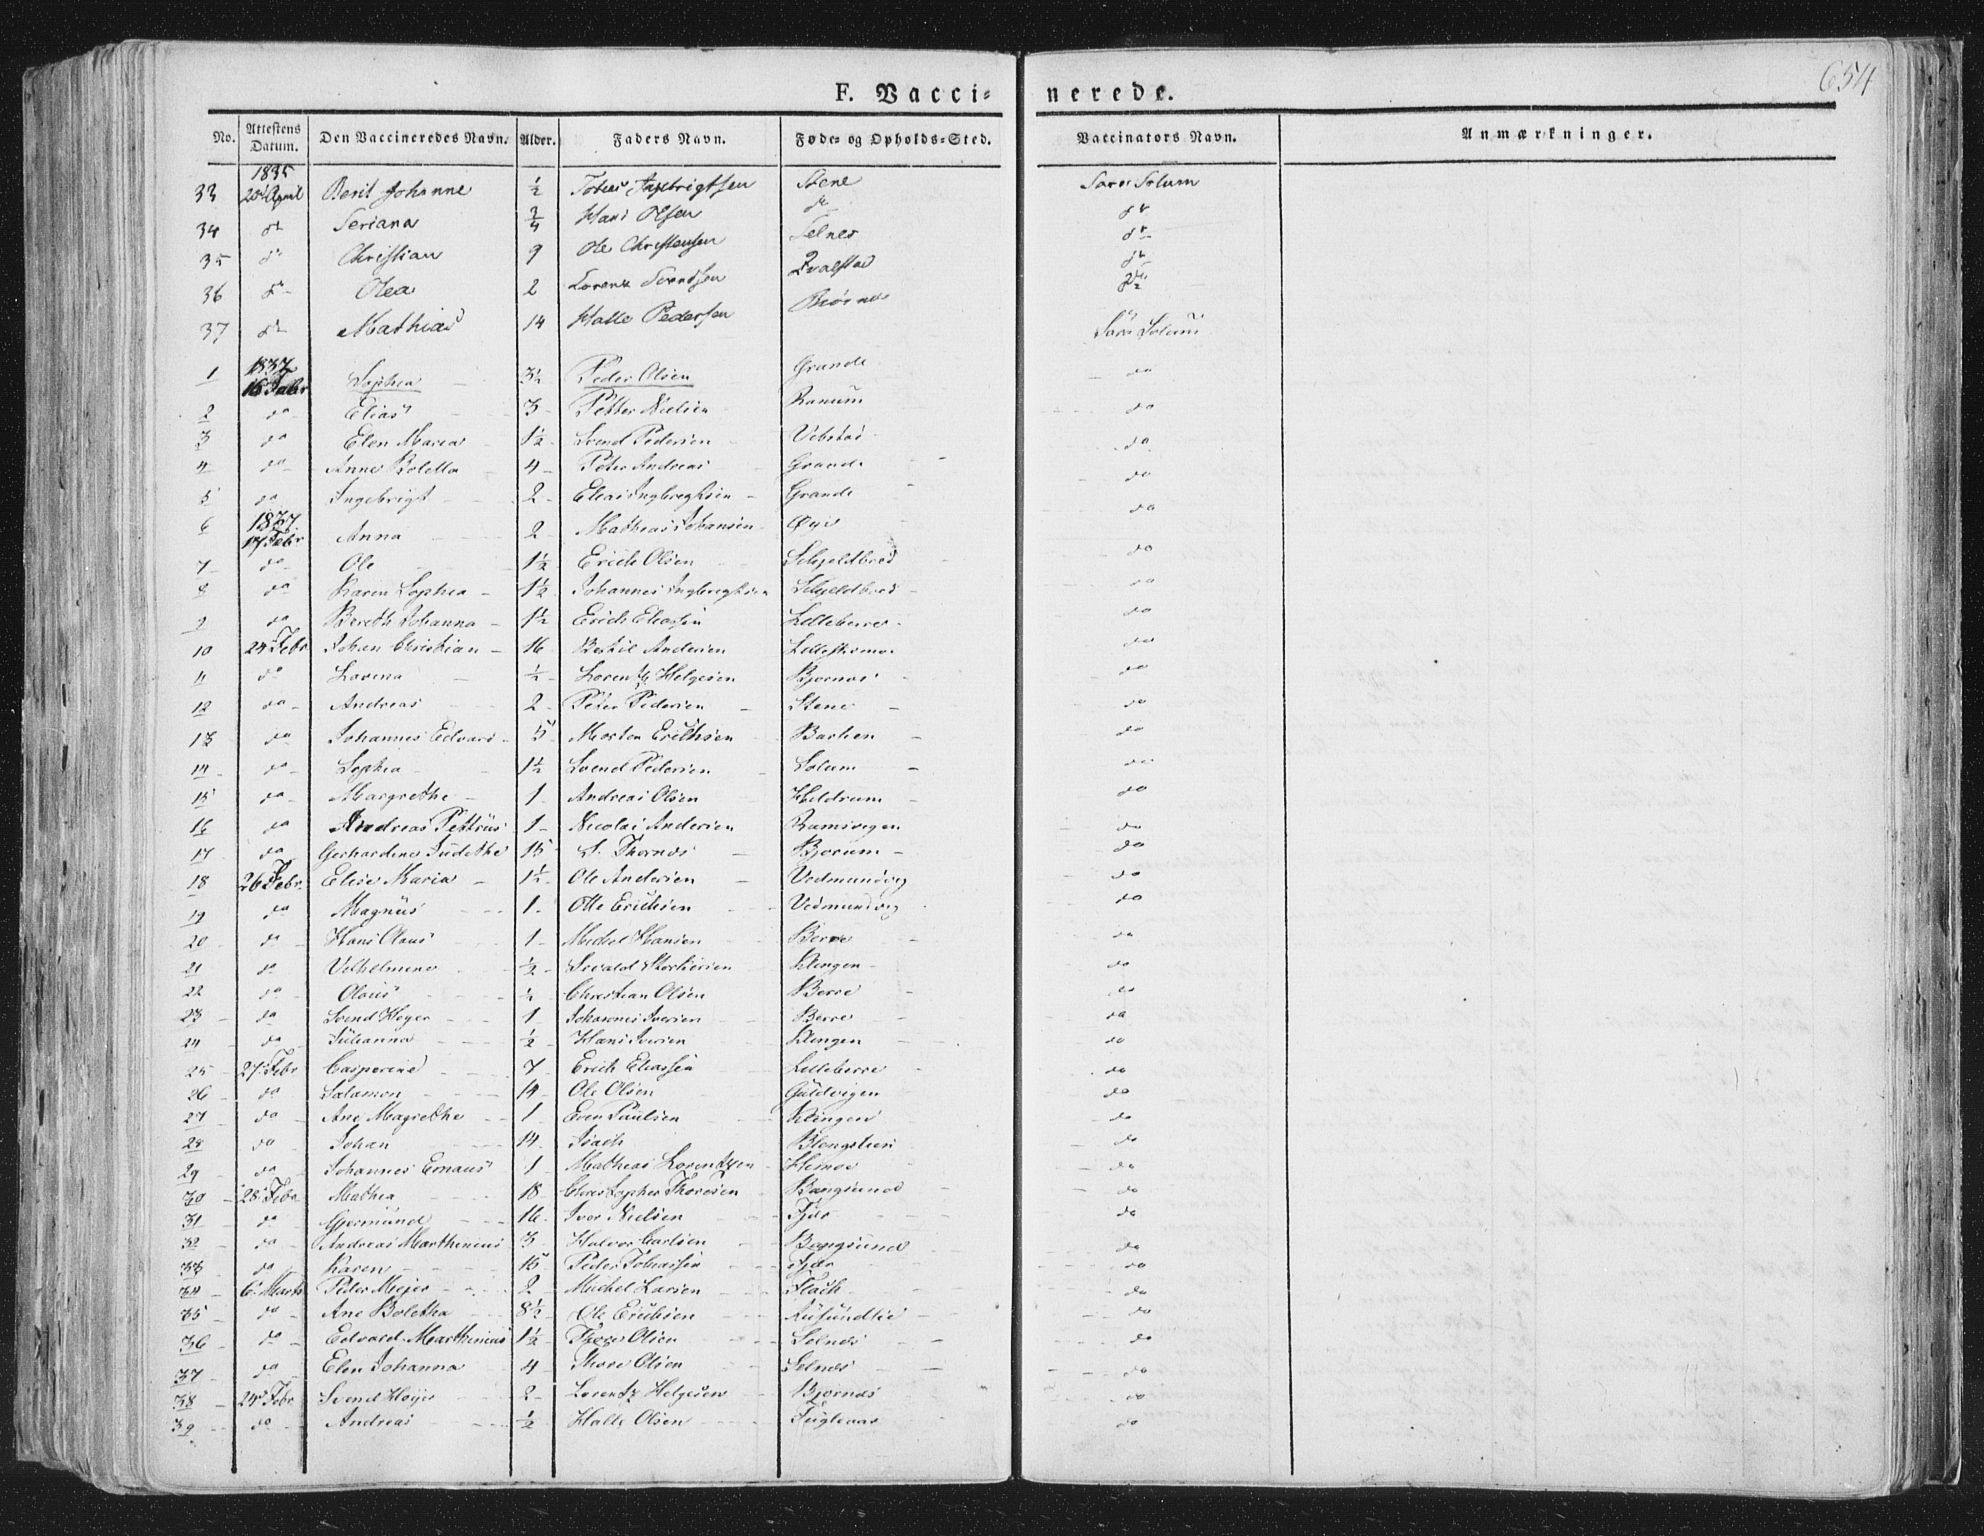 654
F. Vaccinerede.
No. Attestens Datum. Den Vaccineredes Navn. Alder. Faders Navn. Føde- og Opholds-Sted. Vaccinators Navn. Anmærkninger.
1835
33 20 April Berit Johanne ½ Tobias Ingebrigtsen Stene Sara Solum
34 do Seriana ¾ Hans Olsen do do
35 do Christian 9 Ole Christensen Selnes do
36 do Olea 2 Lorentz Svendsen Qvalstad do
37 do Mathias 14 Halle Pedersen Biørnes Sara Solum
1837
1 16 Febr Sophia 3½ Peder Olsen Grande do
2 do Elias 3 Petter Nielsen Ranum do
3 do Elen Maria 1½ Svend Pedersen Vibstad do
4 do Anne Boletta 4 Peter Andreas Grande do
5 do Ingebrigt 2 Elias Ingbreghsen Grande do
1837
6 17 Febr Anna 2 Mathias Johansen Øyie do
7 do Ole 1½ Erich Olsen Schjeldbred do
8 do Karen Sophia 1½ Johannes Ingbreghsen Schjeldbred do
9 do Bereth Johanna 1½ Erich Eliassen Lilleberre do
10 24 Febr Johan Christian 16 Bertil Andersen do
11 do Lorena ½ Lorentz Helgesen Bjornes do
12 do Andreas 2 Peter Pedersen Stene do
13 do Johannes Edvard 5 Morten Erichsen Barhen do
14 do Sophia 1½ Svend Pedersen Solum do
15 do Margrethe 1 Andreas Olsen Hildrum do
16 do Andreas Pettrus 1 Nicolai Andersen Ramsvigen do
17 do Gerhardine Judethe 15 Thornes Bjorum do
18 26 Febr Elise Maria 1½ Ole Andersen Vedmundvig do
19 do Magnus 1 Olle Erichsen Vedmundvig do
20 do Hans Olaus 1 Michel Hansen Berre do
21 do Vilhelmine ½ Sivald Storkersen Klingen do
22 do Olaus ½ Christian Olsen Berre do
23 do Svend Hoyer 1 Johannes Iversen Berre do
24 do Julianna ½ Hans Iversen Klingen do
25 27 Febr Casperine 7 Erich Eliassen Lilleberre do
26 do Salamon 14 Ole Olsen Guldvigen do
27 do Ane Magrethe 1 Even Paulsen Klingen do
28 do Johan 14 Isach do
29 do Johannes Emaus 1 Mathias Lorentzen Klemoe do
30 28 Febr Mathea 18 Christopher Thoresen Bangsund do
31 do Gjermund 16 Iver Nielsen Fjær do
32 do Andreas Marthinius 3 Halvor Carlsen Bangsund do
33 do Karen 15 Peder Tobiassen Fjær do
34 6 Marts Peder Mejer 2 Michel Larsen Flach do
35 do Ane Boletha 8½ Ole Erichsen do
36 do Edvard Marthinius 1½ Thore Olsen Selnes do
37 do Elen Johanna 4 Thore Olsen Selnes do
38 24 Febr Svend Hoyer 2 Lorentz Helgesen Bjornes do
39 do Andreas ½ Halle Olsen Fugleaas do